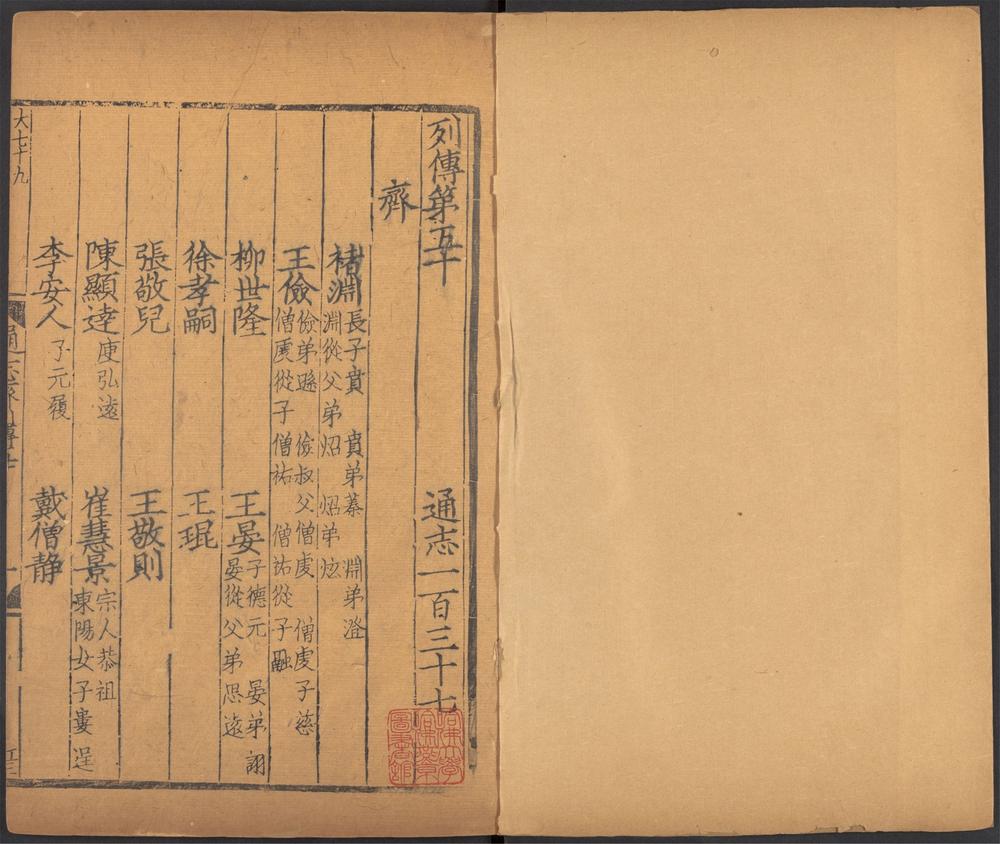 列傳第五十　通志一百三十七
齊
褚淵 長子賁　賁弟蓁　淵弟澄
淵從父弟炤　炤弟炫
王儉 儉弟遜　儉叔父僧虔　僧虔子慈
僧虔從子僧祐　僧祐從子融
柳世隆
王晏 子德元　晏弟詡
晏從父弟思遠
徐孝嗣　王琨
張敬兒　王敬則
陳顯達 庾弘遠
崔慧景 宗人恭祖
東陽女子婁逞
李安人 子元履
戴僧静
大七十九